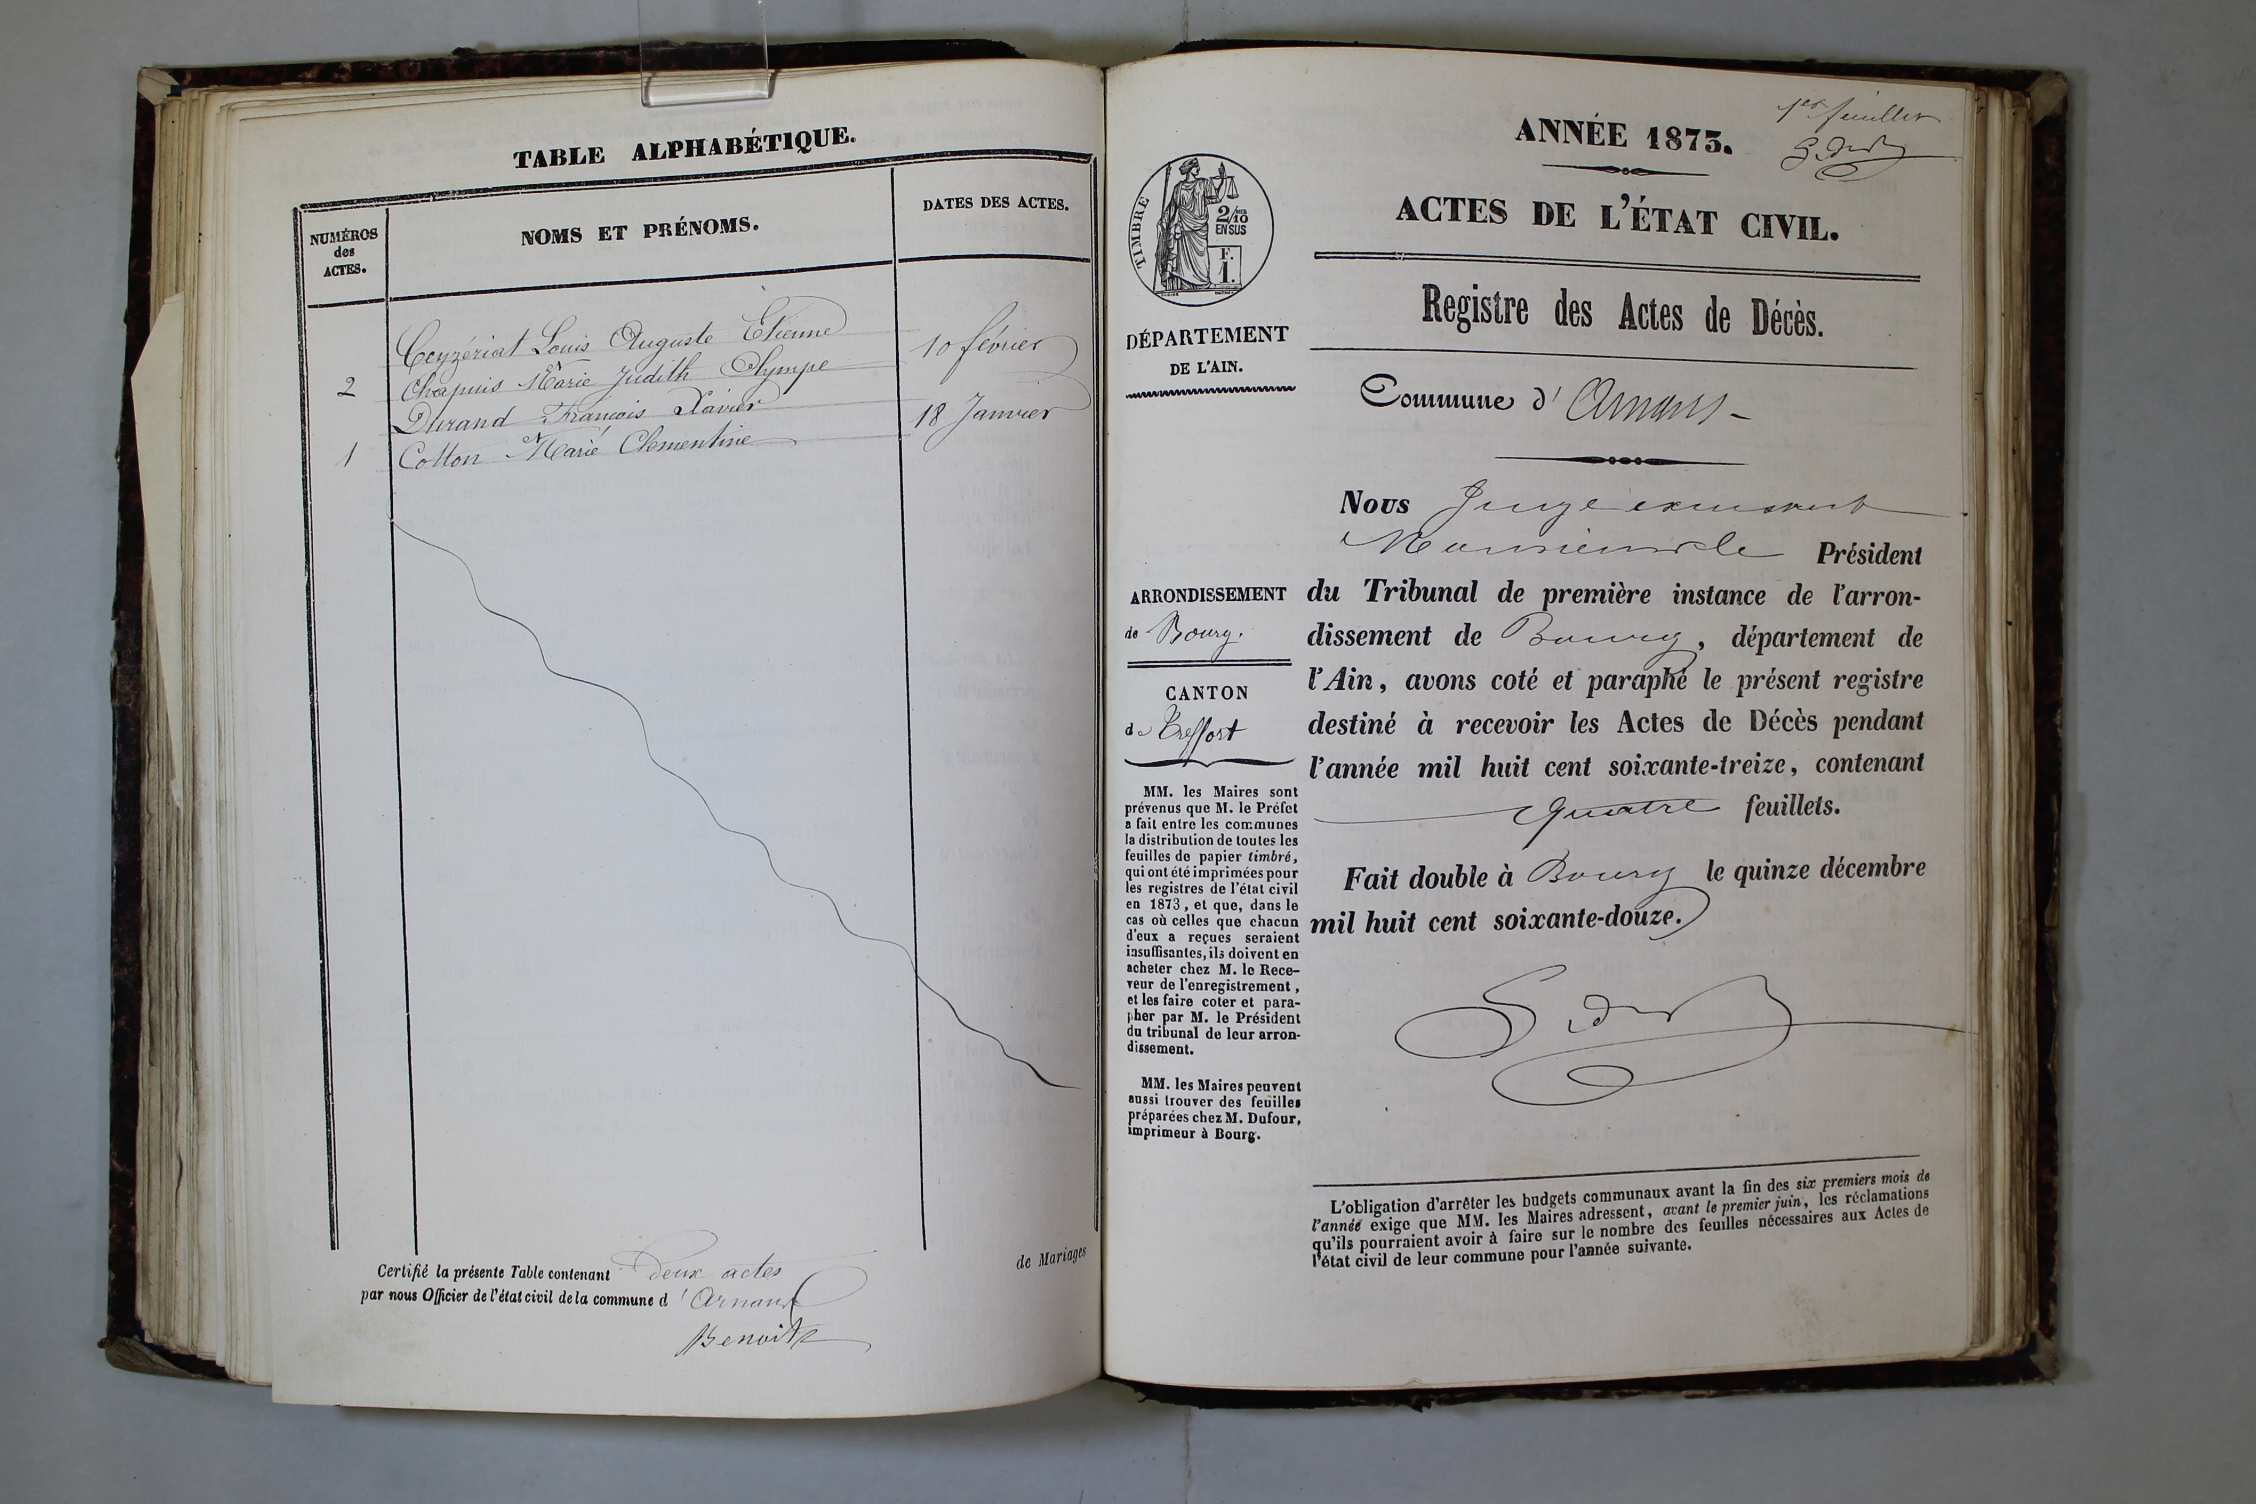 TABLE ALPHABÉTIQUE.
NUMÉROS
des
ACTES.
NOMS ET PRÉNOMS.
DATES DES ACTES.
Ceyzériat Louis Auguste Etienne
10 février
2
et
Chapuis Marie Judith Olympe
Durand François Xavier
18 Janvier
1
et
Cotton Marie Clementine
Certifié la présente Table contenant Deux actes de Mariages
par nous Officier de l'état civil de la commune d'Arnans
Benoit
1er feuillet
ANNÉE 1873.
ACTES DE L'ÉTAT CIVIL.
Registre des Actes de Décès.
Commune d'Arnans
TIMBRE
2/10
EN SUS
F.
1.
DÉPARTEMENT
DE L'AIN.
ARRONDISSEMENT
de Bourg.
CANTON
de Treffort
MM. les Maires sont
prévenus que M. le Préfet
a fait entre les communes
la distribution de toutes les
feuilles de papier timbré,
qui ont été imprimées pour
les registres de l'état civil
en 1873, et que, dans le
cas où celles que chacun
d'eux a reçues seraient
insuffisantes, ils doivent en
acheter chez M. le Rece-
veur de l'enregistrement,
et les faire coter et para-
pher par M. le Président
du tribunal de leur arron-
dissement.
MM. les Maires peuvent
aussi trouver des feuilles
préparées chez M. Dufour,
imprimeur à Bourg.
Nous Juge
Monsieur le Président
du Tribunal de première instance de l'arron-
dissement de Bourg, département de
l'Ain, avons coté et paraphé le présent registre
destiné à recevoir les Actes de Décès pendant
l'année mil huit cent soixante-treize, contenant
quatre feuillets.
Fait double à Bourg le quinze décembre
mil huit cent soixante-douze.
L'obligation d'arrêter les budgets communaux avant la fin des six premiers mois de
l'année exige que MM. les Maires adressent, avant le premier juin, les réclamations
qu'ils pourraient avoir à faire sur le nombre des feuilles nécessaires aux Actes de
l'état civil de leur commune pour l'année suivante.